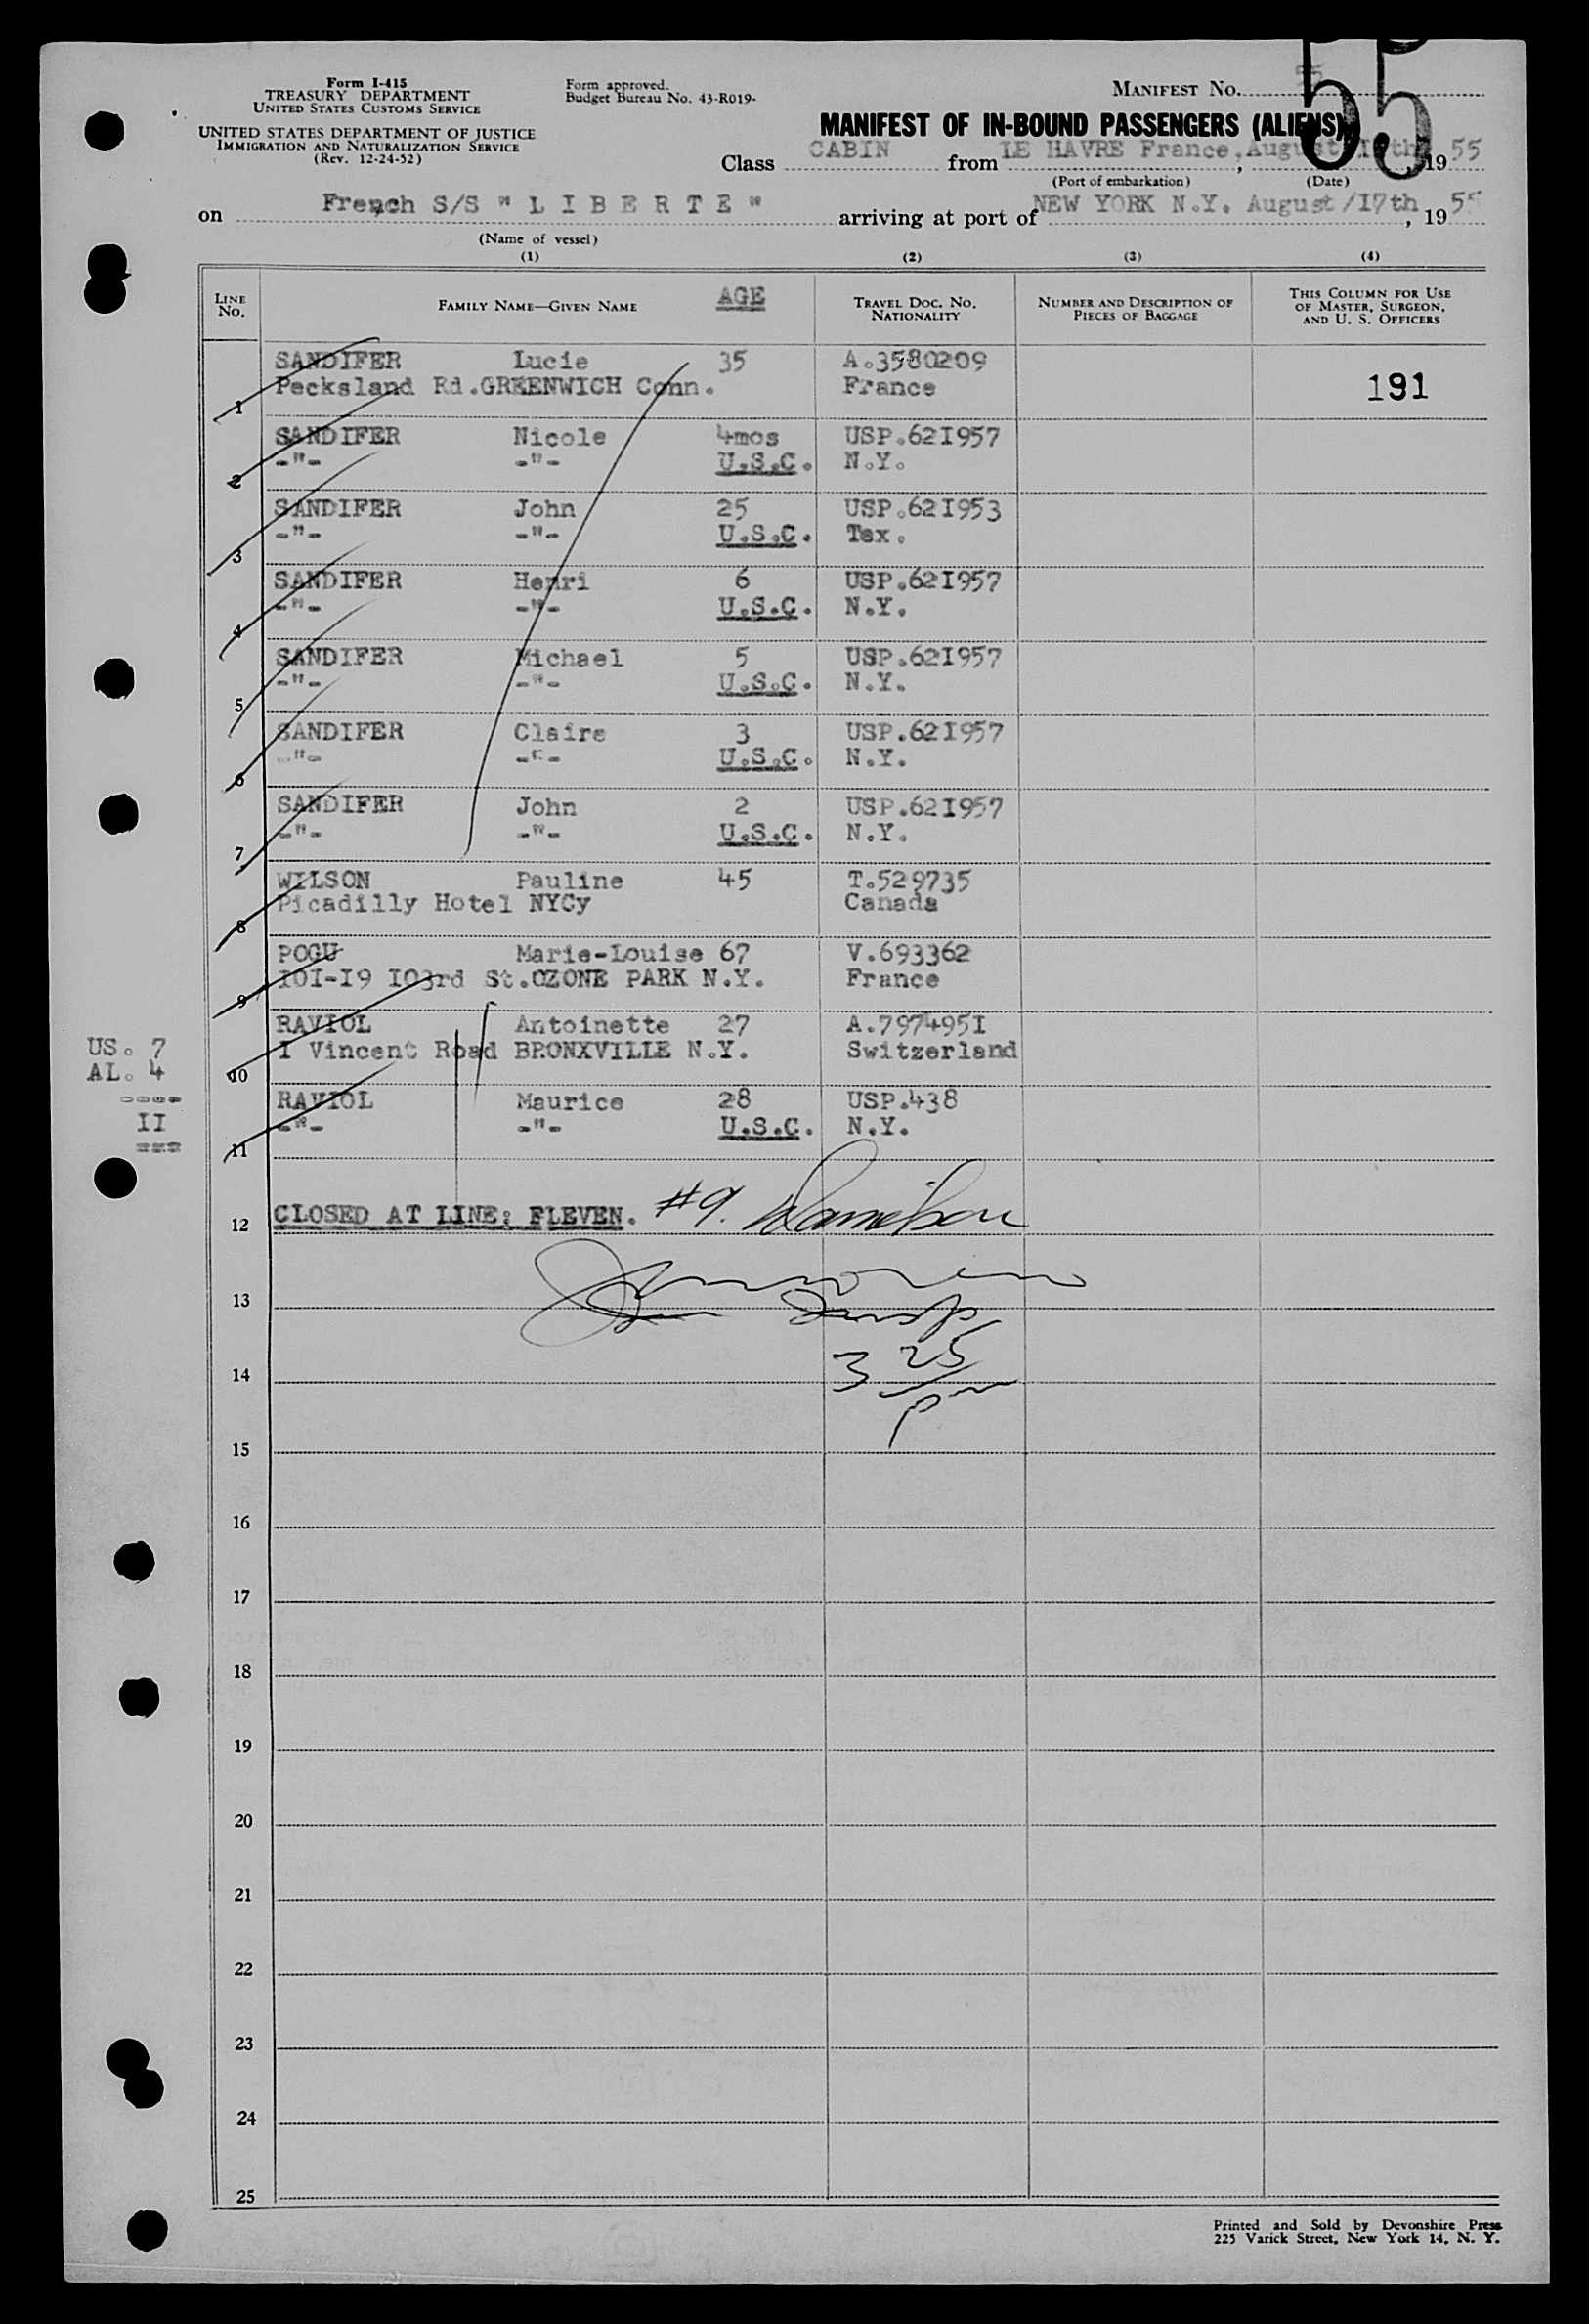 Form I-415
TREASURY DEPARTMENT
UNITED STATES CUSTOMS SERVICE
UNITED STATES DEPARTMENT OF JUSTICE
IMMIGRATION AND NATURALIZATION SERVICE
(Rev. 12-24-52)
Form approved.
Budget Bureau No. 43-R019-
MANIFEST NO.
55
MANIFEST OF IN-BOUND PASSENGERS (ALIENS)
Class CABIN from LE HAVRE France, August 19 55
(Port of embarkation) (Date)
on French S/S " L I B E R T E " arriving at port of NEW YORK N.Y. August/I7th, 19 55
(Name of vessel)
(1) (2) (3) (4)
LINE NO. FAMILY NAME—GIVEN NAME AGE TRAVEL DOC. NO. NATIONALITY NUMBER AND DESCRIPTION OF PIECES OF BAGGAGE THIS COLUMN FOR USE OF MASTER, SURGEON, AND U. S. OFFICERS
SANDIFER Lucie 35 A.3580209
1 Pecksland Rd.GREENWICH Conn. France 191
SANDIFER Nicole 4mos USP.62I957
2 -"- -"- U.S.C. N.Y.
SANDIFER John 25 USP.62I953
3 -"- -"- U.S.C. Tex.
SANDIFER Henri 6 USP.62I957
4 -"- -"- U.S.C. N.Y.
SANDIFER Michael 5 USP.62I957
5 -"- -"- U.S.C. N.Y.
SANDIFER Claire 3 USP.62I957
6 -"- -"- U.S.C. N.Y.
SANDIFER John 2 USP.62I957
7 -"- -"- U.S.C. N.Y.
WILSON Pauline 45 T.529735
8 Picadilly Hotel NYCy Canada
POGU Marie-Louise 67 V.693362
9 I0I-I9 I03rd St.OZONE PARK N.Y. France
RAVIOL Antoinette 27 A.797495I
10 I Vincent Road BRONXVILLE N.Y. Switzerland
RAVIOL Maurice 28 USP.438
11 -"- -"- U.S.C. N.Y.
US. 7
AL. 4
----
II
===
12 CLOSED AT LINE: ELEVEN. #9.
13
3 25
14
pm
15
16
17
18
19
20
21
22
23
24
25
Printed and Sold by Devonshire Press
225 Varick Street, New York 14, N. Y.